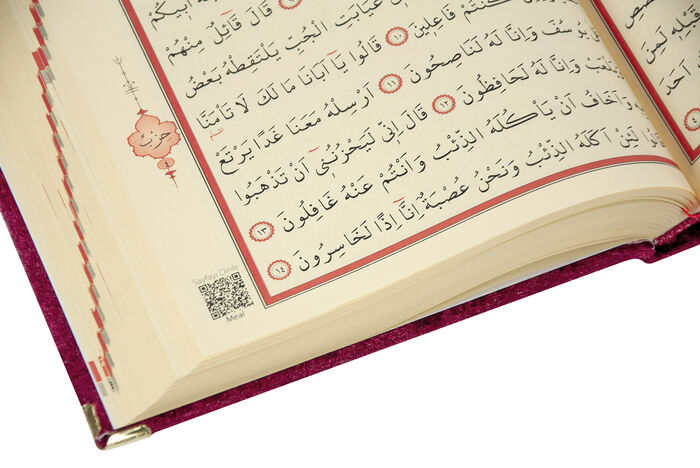 اَبِيكُمْ
قَالَ قَٓائِلٌ مِنْهُمْ
غَيَابَتِ الْجُبِّ يَلْتَقِطْهُ بَعْضُ
كُنْتُمْ فَاعِلِينَ ١٠ قَالُوا يَٓا اَبَانَا مَا لَكَ لَا تَأْمَنَّا
يُوسُفَ وَاِنَّا لَهُ لَنَاصِحُونَ ١١ اَرْسِلْهُ مَعَنَا غَدًا يَرْتَعْ
وَاِنَّا لَهُ لَحَافِظُونَ ١٢ قَالَ اِنِّي لَيَحْزُنُنِٓي اَنْ تَذْهَبُوا
وَاَخَافُ اَنْ يَأْكُلَهُ الذِّئْبُ وَاَنْتُمْ عَنْهُ غَافِلُونَ ١٣
لَئِنْ اَكَلَهُ الذِّئْبُ وَنَحْنُ عُصْبَةٌ اِنَّٓا اِذًا لَخَاسِرُونَ ١٤
حزب
Sayfayı Dinle
Meal
قَبْلِهِ لَمِنَ
اَحَدَ